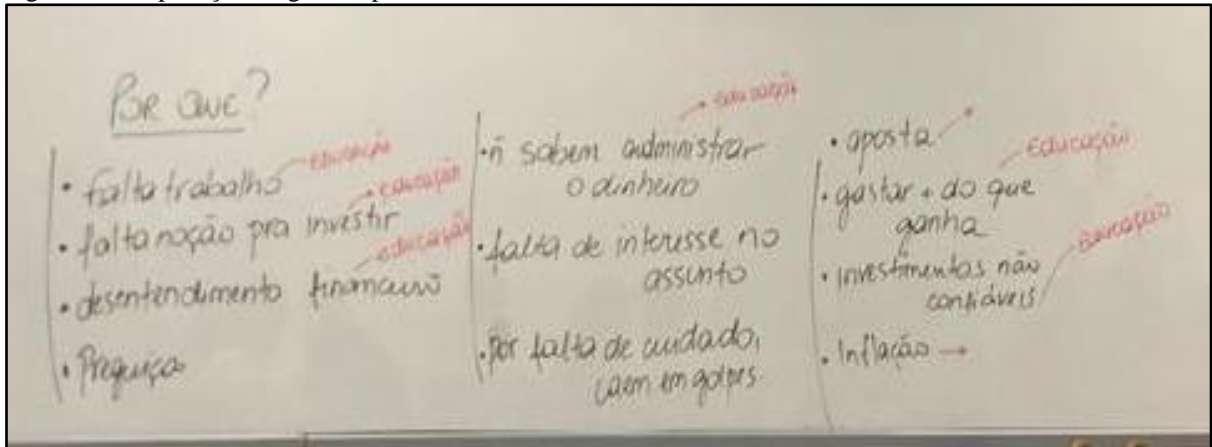 Por que?
• falta trabalho educação
• falta noção pra investir educação
• desentendimento financeiro educação
• Preguiça
educação
• ñ sabem administrar
o dinheiro
• falta de interesse no
assunto
• por falta de cuidado,
caem em golpes.
• aposta
educação
• gastar + do que
ganha
educação
• investimentos não
confiáveis
• Inflação →